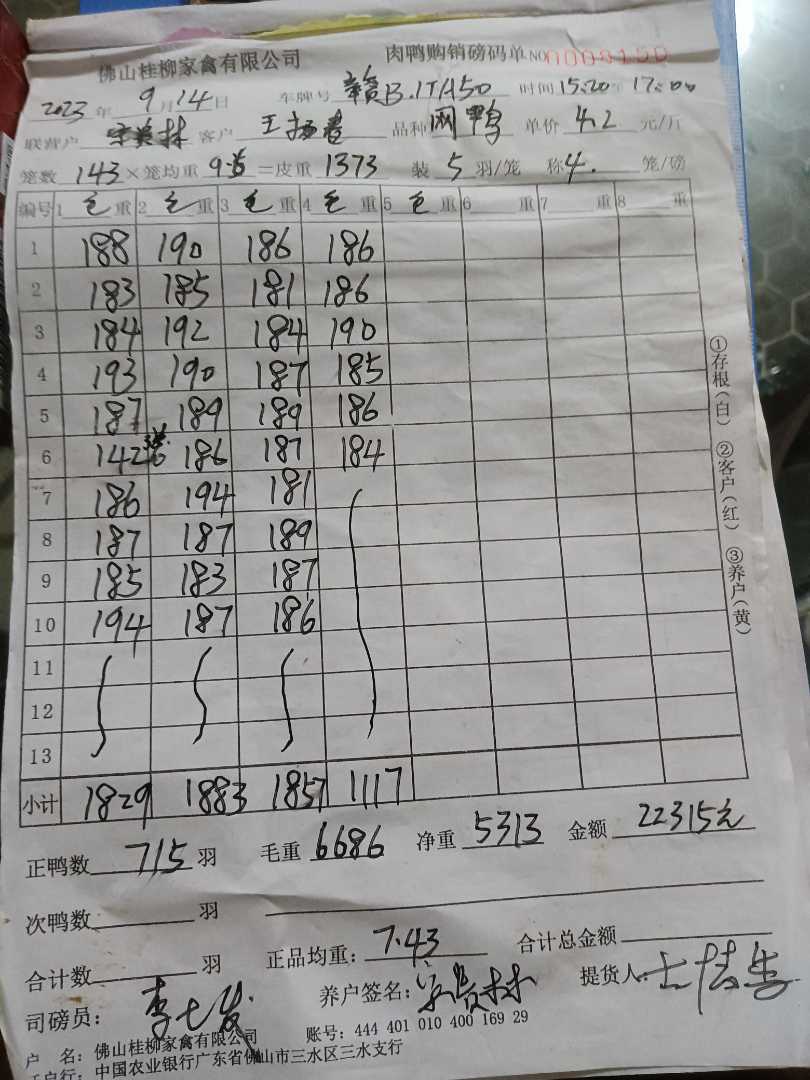 佛山桂柳家禽有限公司 肉鸭购销磅码单 NO 0008150
2023年 9月14日 车牌号 赣B.1TA50 时间 15:20 17:00
联营户 客户 品种 网鸭 单价 4.2 元/斤
笼数 143 ×笼均重 9.6 =皮重 1373 装 5 羽/笼 称 4. 笼/磅
编号 1 毛重 2 毛重 3 毛重 4 毛重 5 毛重 6 重 7 重 8 重
1 188 190 186 186
2 183 185 181 186
3 184 192 184 190
4 193 190 187 185
5 187 189 189 186
6 142 186 187 184
7 186 194 181
8 187 187 189
9 185 183 187
10 194 187 186
11
12
13
小计 1829 1883 1857 1117
正鸭数 715 羽 毛重 6686 净重 5313 金额 22315元
次鸭数 羽
合计数 羽 正品均重: 7.43 合计总金额
司磅员: 李七发 养户签名: 提货人
户 名: 佛山桂柳家禽有限公司 账号: 444 401 010 400 169 29
开户行: 中国农业银行广东省佛山市三水区三水支行
①存根(白) ②客户(红) ③养户(黄)